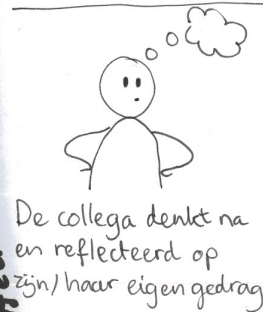 De collega denkt na
en reflecteerd op
zijn/haar eigen gedrag